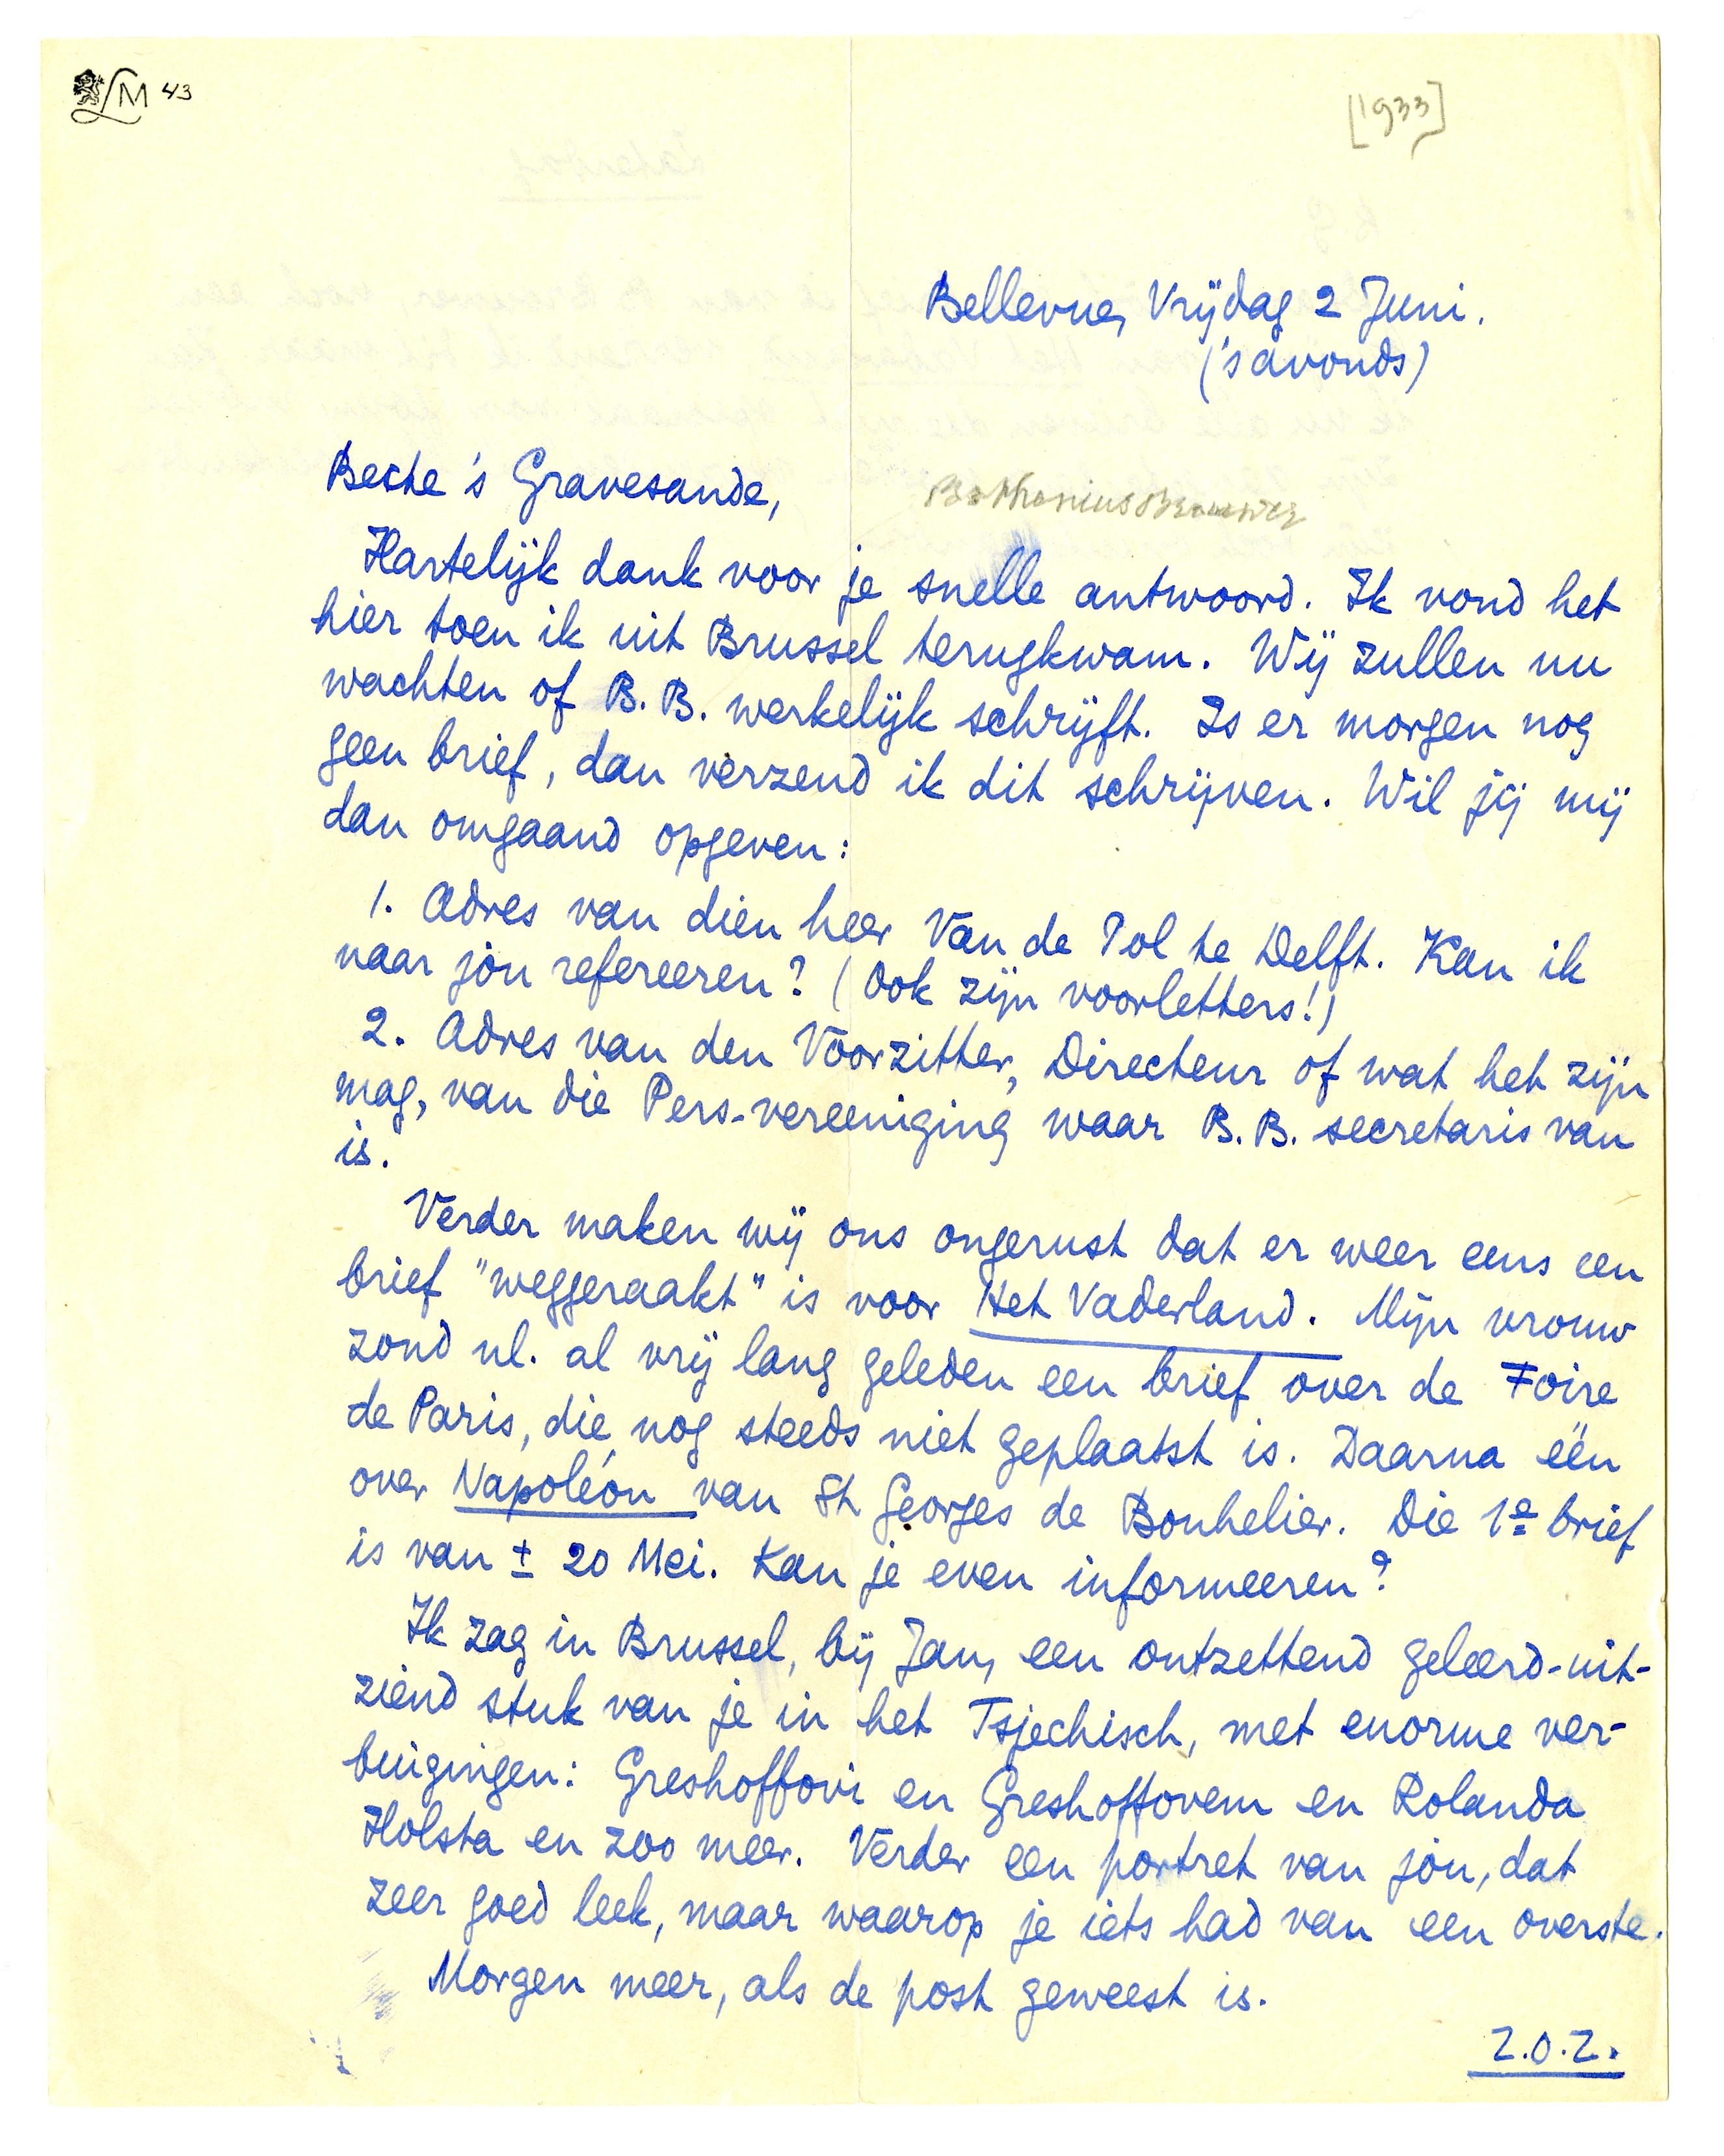 LM 43
[1933]
Bellevue, Vrijdag 2 Juni.
('s avonds)
Beste 's Gravesande,
Hartelijk dank voor je snelle antwoord. Ik vond het
hier toen ik uit Brussel terugkwam. Wij zullen nu
wachten of B.B. werkelijk schrijft. Is er morgen nog
geen brief, dan verzend ik dit schrijven. Wil jij mij
dan omgaand opgeven:
1. Adres van dien heer Van de Pol te Delft. Kan ik
naar jòu refereeren? (Ook zijn voorletters!)
2. Adres van den Voorzitter, Directeur of wat het zijn
mag, van die Pers-vereeniging waar B.B. secretaris van
is.
Verder maken wij ons ongerust dat er weer eens een
brief "weggeraakt" is voor Het Vaderland. Mijn vrouw
zond nl. al vrij lang geleden een brief over de Foire
de Paris, die nog steeds niet geplaatst is. Daarna één
over Napoléon van St Georges de Bouhelier. Die 1e brief
is van ± 20 Mei. Kan je even informeeren?
Ik zag in Brussel, bij Jan, een ontzettend geleerd-uit-
ziend stuk van je in het Tsjechisch, met enorme ver-
buigingen: Greshoffovi en Greshoffovem en Rolanda
Holsta en zoo meer. Verder een portret van jòu, dat
zeer goed leek, maar waarop je iets had van een overste.
Morgen meer, als de post geweest is.
Z.O.Z.